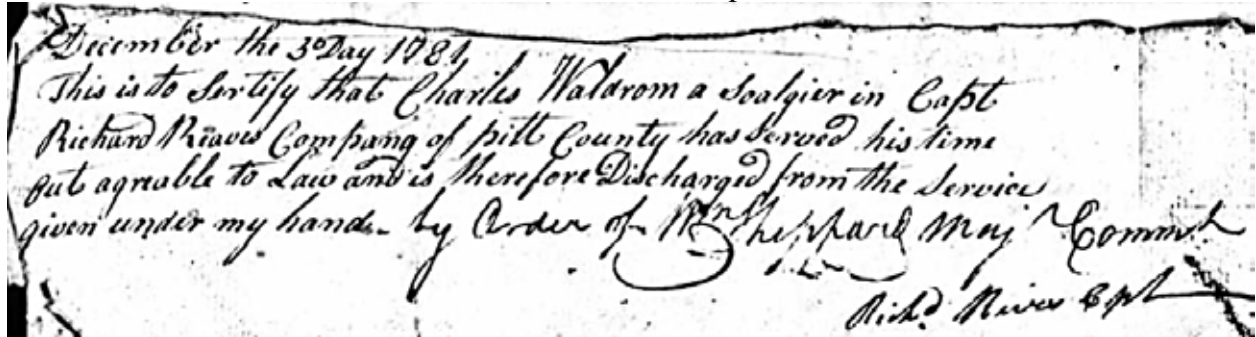 December the 3d Day 1781
This is to Sertify that Charles Waldrom a Soalgier in Capt
Richard Reaves Company of pitt County has Served his time
out agreable to Law and is therefore Discharged from the Service
given under my hand by Order of Wm Sheppard Maj Commt
Richd Rives Cpt